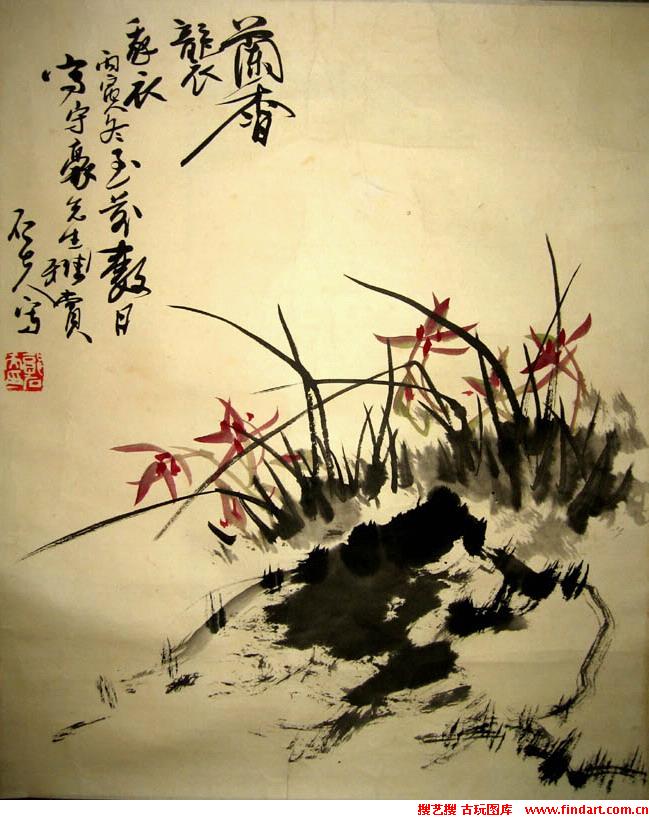 蘭香
襲
衣
丙寅冬至前數日
守豪先生雅賞
石夫寫
搜艺搜 古玩图库 www.findart.com.cn